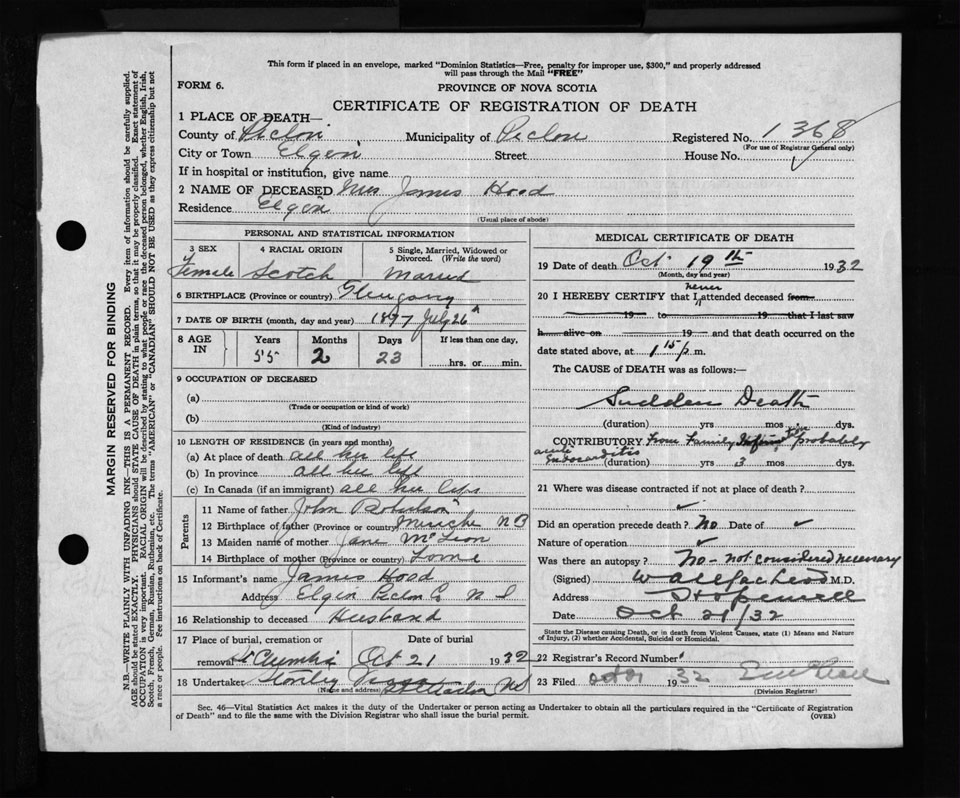 This form if placed in an envelope, marked "Dominion Statistics—Free, penalty for improper use, $300," and properly addressed
will pass through the Mail "FREE"
FORM 6.
PROVINCE OF NOVA SCOTIA
CERTIFICATE OF REGISTRATION OF DEATH
1 PLACE OF DEATH—
County of Pictou Municipality of Pictou Registered No. 1368
(For use of Registrar General only)
City or Town Elgin Street House No.
If in hospital or institution, give name
2 NAME OF DECEASED Mrs James Hood
Residence Elgin
(Usual place of abode)
PERSONAL AND STATISTICAL INFORMATION
3 SEX 4 RACIAL ORIGIN 5 Single, Married, Widowed or
Divorced. (Write the word)
Female Scotch Married
6 BIRTHPLACE (Province or country) Glengarry
7 DATE OF BIRTH (month, day and year) 1877 July 26
8 AGE IN Years Months Days If less than one day,
55 2 23 hrs. or min.
9 OCCUPATION OF DECEASED
(a)
(Trade or occupation or kind of work)
(b)
(Kind of industry)
10 LENGTH OF RESIDENCE (in years and months)
(a) At place of death all her life
(b) In province all her life
(c) In Canada (if an immigrant) all her life
Parents
11 Name of father John Robertson
12 Birthplace of father (Province or country) N B
13 Maiden name of mother Jane
14 Birthplace of mother (Province or country) Lorne
15 Informant's name James Hood
Address Elgin Pictou Co N S
16 Relationship to deceased Husband
17 Place of burial, cremation or Date of burial
removal Oct 21 1932
18 Undertaker
(Name and address)
MEDICAL CERTIFICATE OF DEATH
19 Date of death Oct 19th 1932
(Month, day and year)
20 I HEREBY CERTIFY that I never attended deceased from
19 to 19 that I last saw
h alive on 19 and that death occurred on the
date stated above, at 1 15/ p. m.
The CAUSE of DEATH was as follows:—
Sudden Death
(duration) yrs mos dys.
CONTRIBUTORY From Family probably
acute Endocarditis
(duration) yrs 3 mos dys.
21 Where was disease contracted if not at place of death?
Did an operation precede death? No Date of
Nature of operation
Was there an autopsy? No - not considered necessary
(Signed) M.D.
Address Hopewell
Date Oct 21/32
State the Disease causing Death, or in death from Violent Causes, state (1) Means and Nature
of Injury, (2) whether Accidental, Suicidal or Homicidal.
22 Registrar's Record Number
23 Filed Oct 21 1932
(Division Registrar)
Sec. 46—Vital Statistics Act makes it the duty of the Undertaker or person acting as Undertaker to obtain all the particulars required in the "Certificate of Registration
of Death" and to file the same with the Division Registrar who shall issue the burial permit.
(OVER)
MARGIN RESERVED FOR BINDING
N.B.—WRITE PLAINLY WITH UNFADING INK—THIS IS A PERMANENT RECORD. Every item of information should be carefully supplied.
AGE should be stated EXACTLY. PHYSICIANS should STATE CAUSE OF DEATH in plain terms, so that it may be properly classified. Exact statement of
OCCUPATION is very important. RACIAL ORIGIN will be described by stating to what people or race the deceased person belonged, whether English, Irish,
Scotch, French, German, Russian, Ruthenian, etc. The terms "AMERICAN" or "CANADIAN" SHOULD NOT BE USED as they express citizenship but not
a race or people. See instructions on back of Certificate.